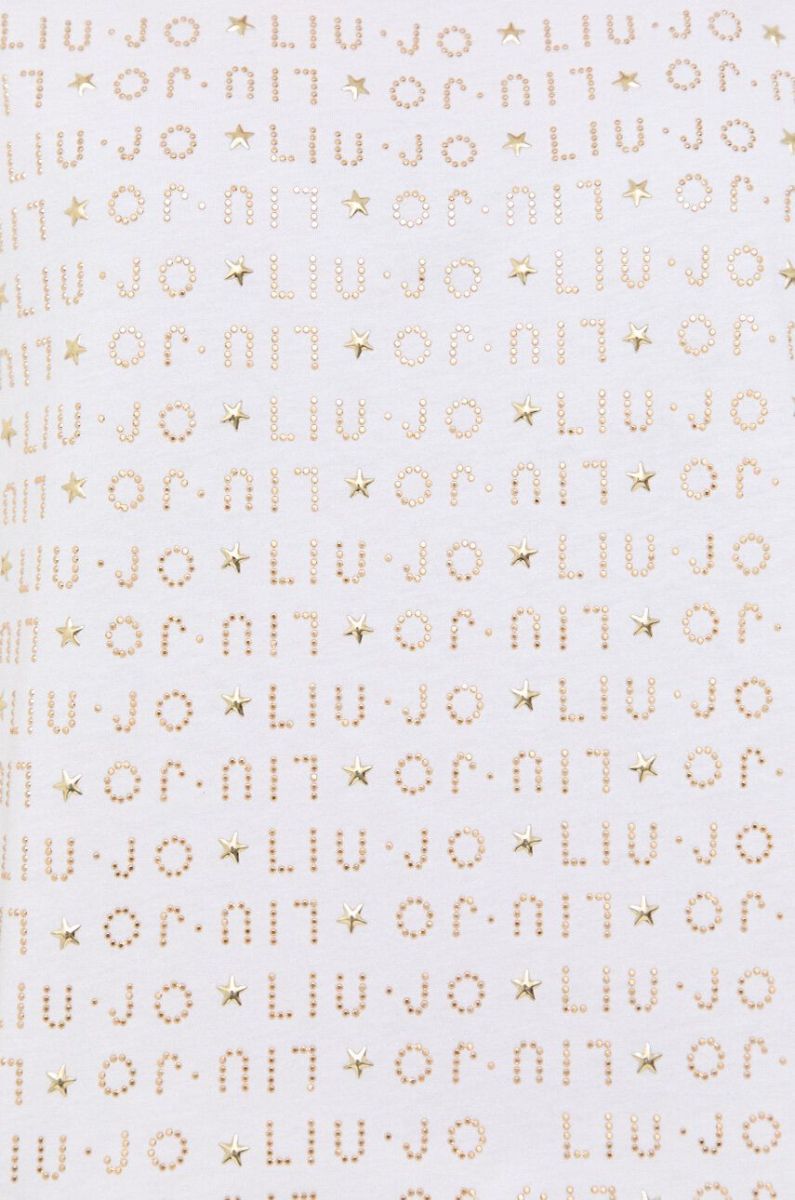 LIU·JO LIU·JO LIU·JO
·JO LIU·JO LI
LIU·JO LIU·JO LIU·JO
·JO LIU·JO LI
LIU·JO LIU·JO LIU·JO
·JO LIU·JO LI
LIU·JO LIU·JO LIU·JO
JO LIU·JO LIU
LIU·JO LIU·JO LIU·JO
JO LIU·JO LIU
LIU·JO LIU·JO LIU·JO
JO LIU·JO LI
LIU·JO LIU·JO LIU·JO
JO LIU·JO LI
LIU·JO LIU·JO LIU·JO
JO LIU·JO L
IU·JO LIU·JO LIU·JO